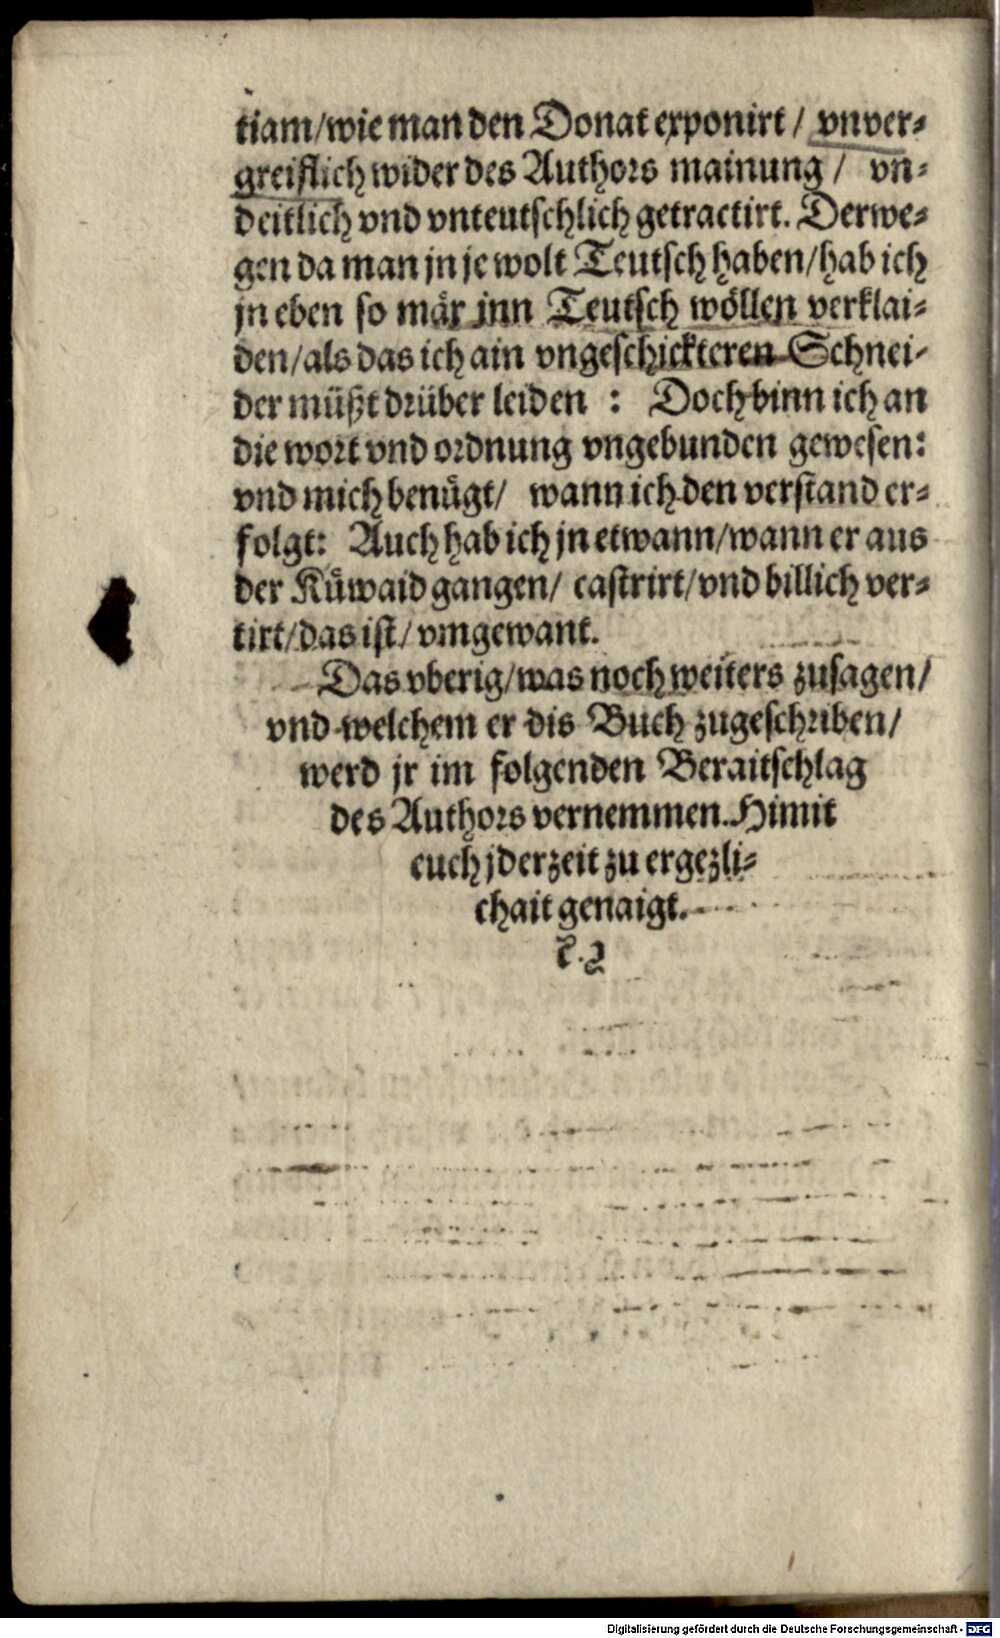 tiam/wie man den Donat exponirt/ vnver-
greiflich wider des Authors mainung/ vn-
deitlich vnd vnteutschlich getractirt. Derwe-
gen da man jn je wolt Teutsch haben/hab ich
jn eben so mår inn Teutsch wöllen verklai-
den/als das ich ain vngeschickteren Schnei-
der müßt drüber leiden : Doch binn ich an
die wort vnd ordnung vngebunden gewesen:
vnd mich benügt/ wann ich den verstand er-
folgt: Auch hab ich jn etwann/wann er aus
der Küwaid gangen/ castrirt/vnd billich ver-
tirt/das ist/ vmgewant.
Das vberig/was noch weiters zusagen/
vnd welchem er dis Buch zugeschriben/
werd jr im folgenden Beraitschlag
des Authors vernemmen. Himit
euch jderzeit zu ergezli-
chait genaigt.
Digitalisierung gefördert durch die Deutsche Forschungsgemeinschaft - DFG